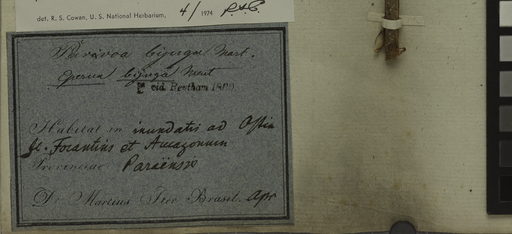 det. R. S. Cowan, U. S. National Herbarium, 4/ 1974
Parivoa bijuga Mart.
Eperua bijuga Mart
cid. Bentham 1869.
Habitat in inundatis ad Ostia
fl. Tocantins et Amazonum
Provinciae Paraënsis
Dr. Martius Iter Brasil. Apr